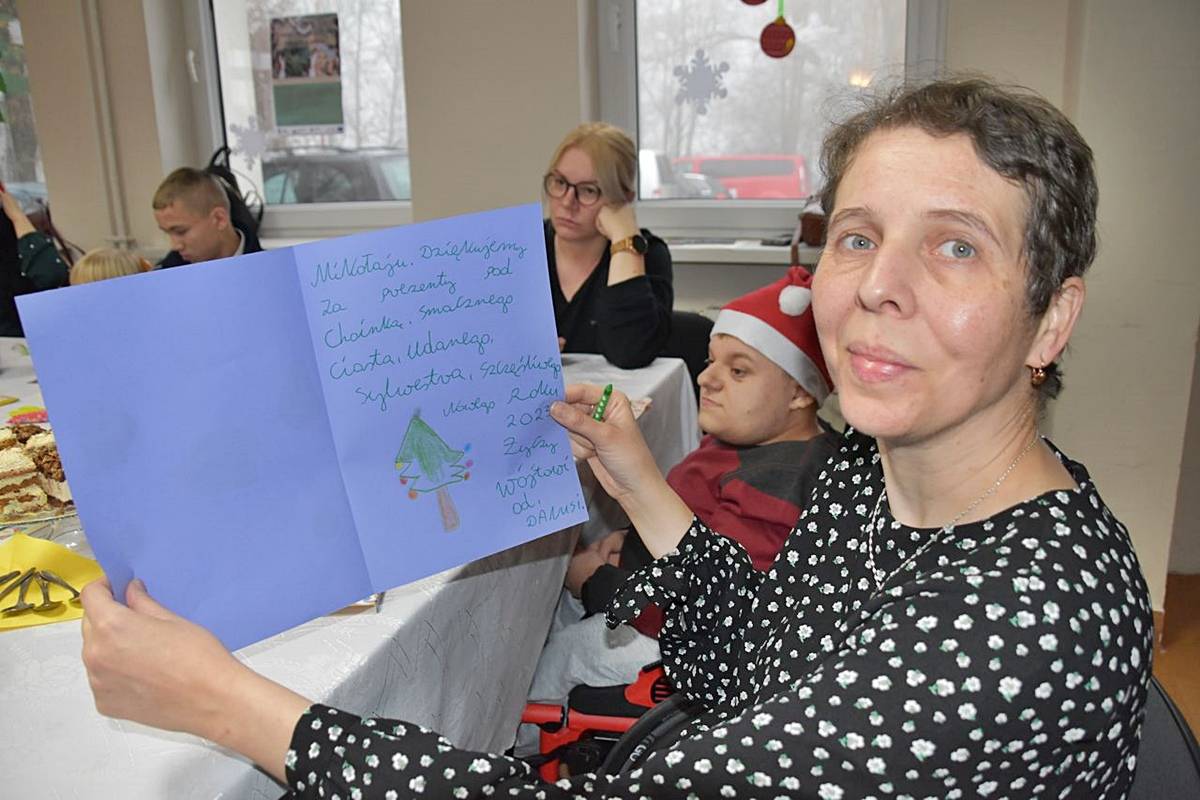 MiKołaju. Dziękujemy
Za prezenty pod
Choinką. Smacznego
Ciasta, Udanego,
Sylwestra, Szczęśliwego
Nowego Roku
2023
Życzy
Wójtowi
od,
DANUSi.